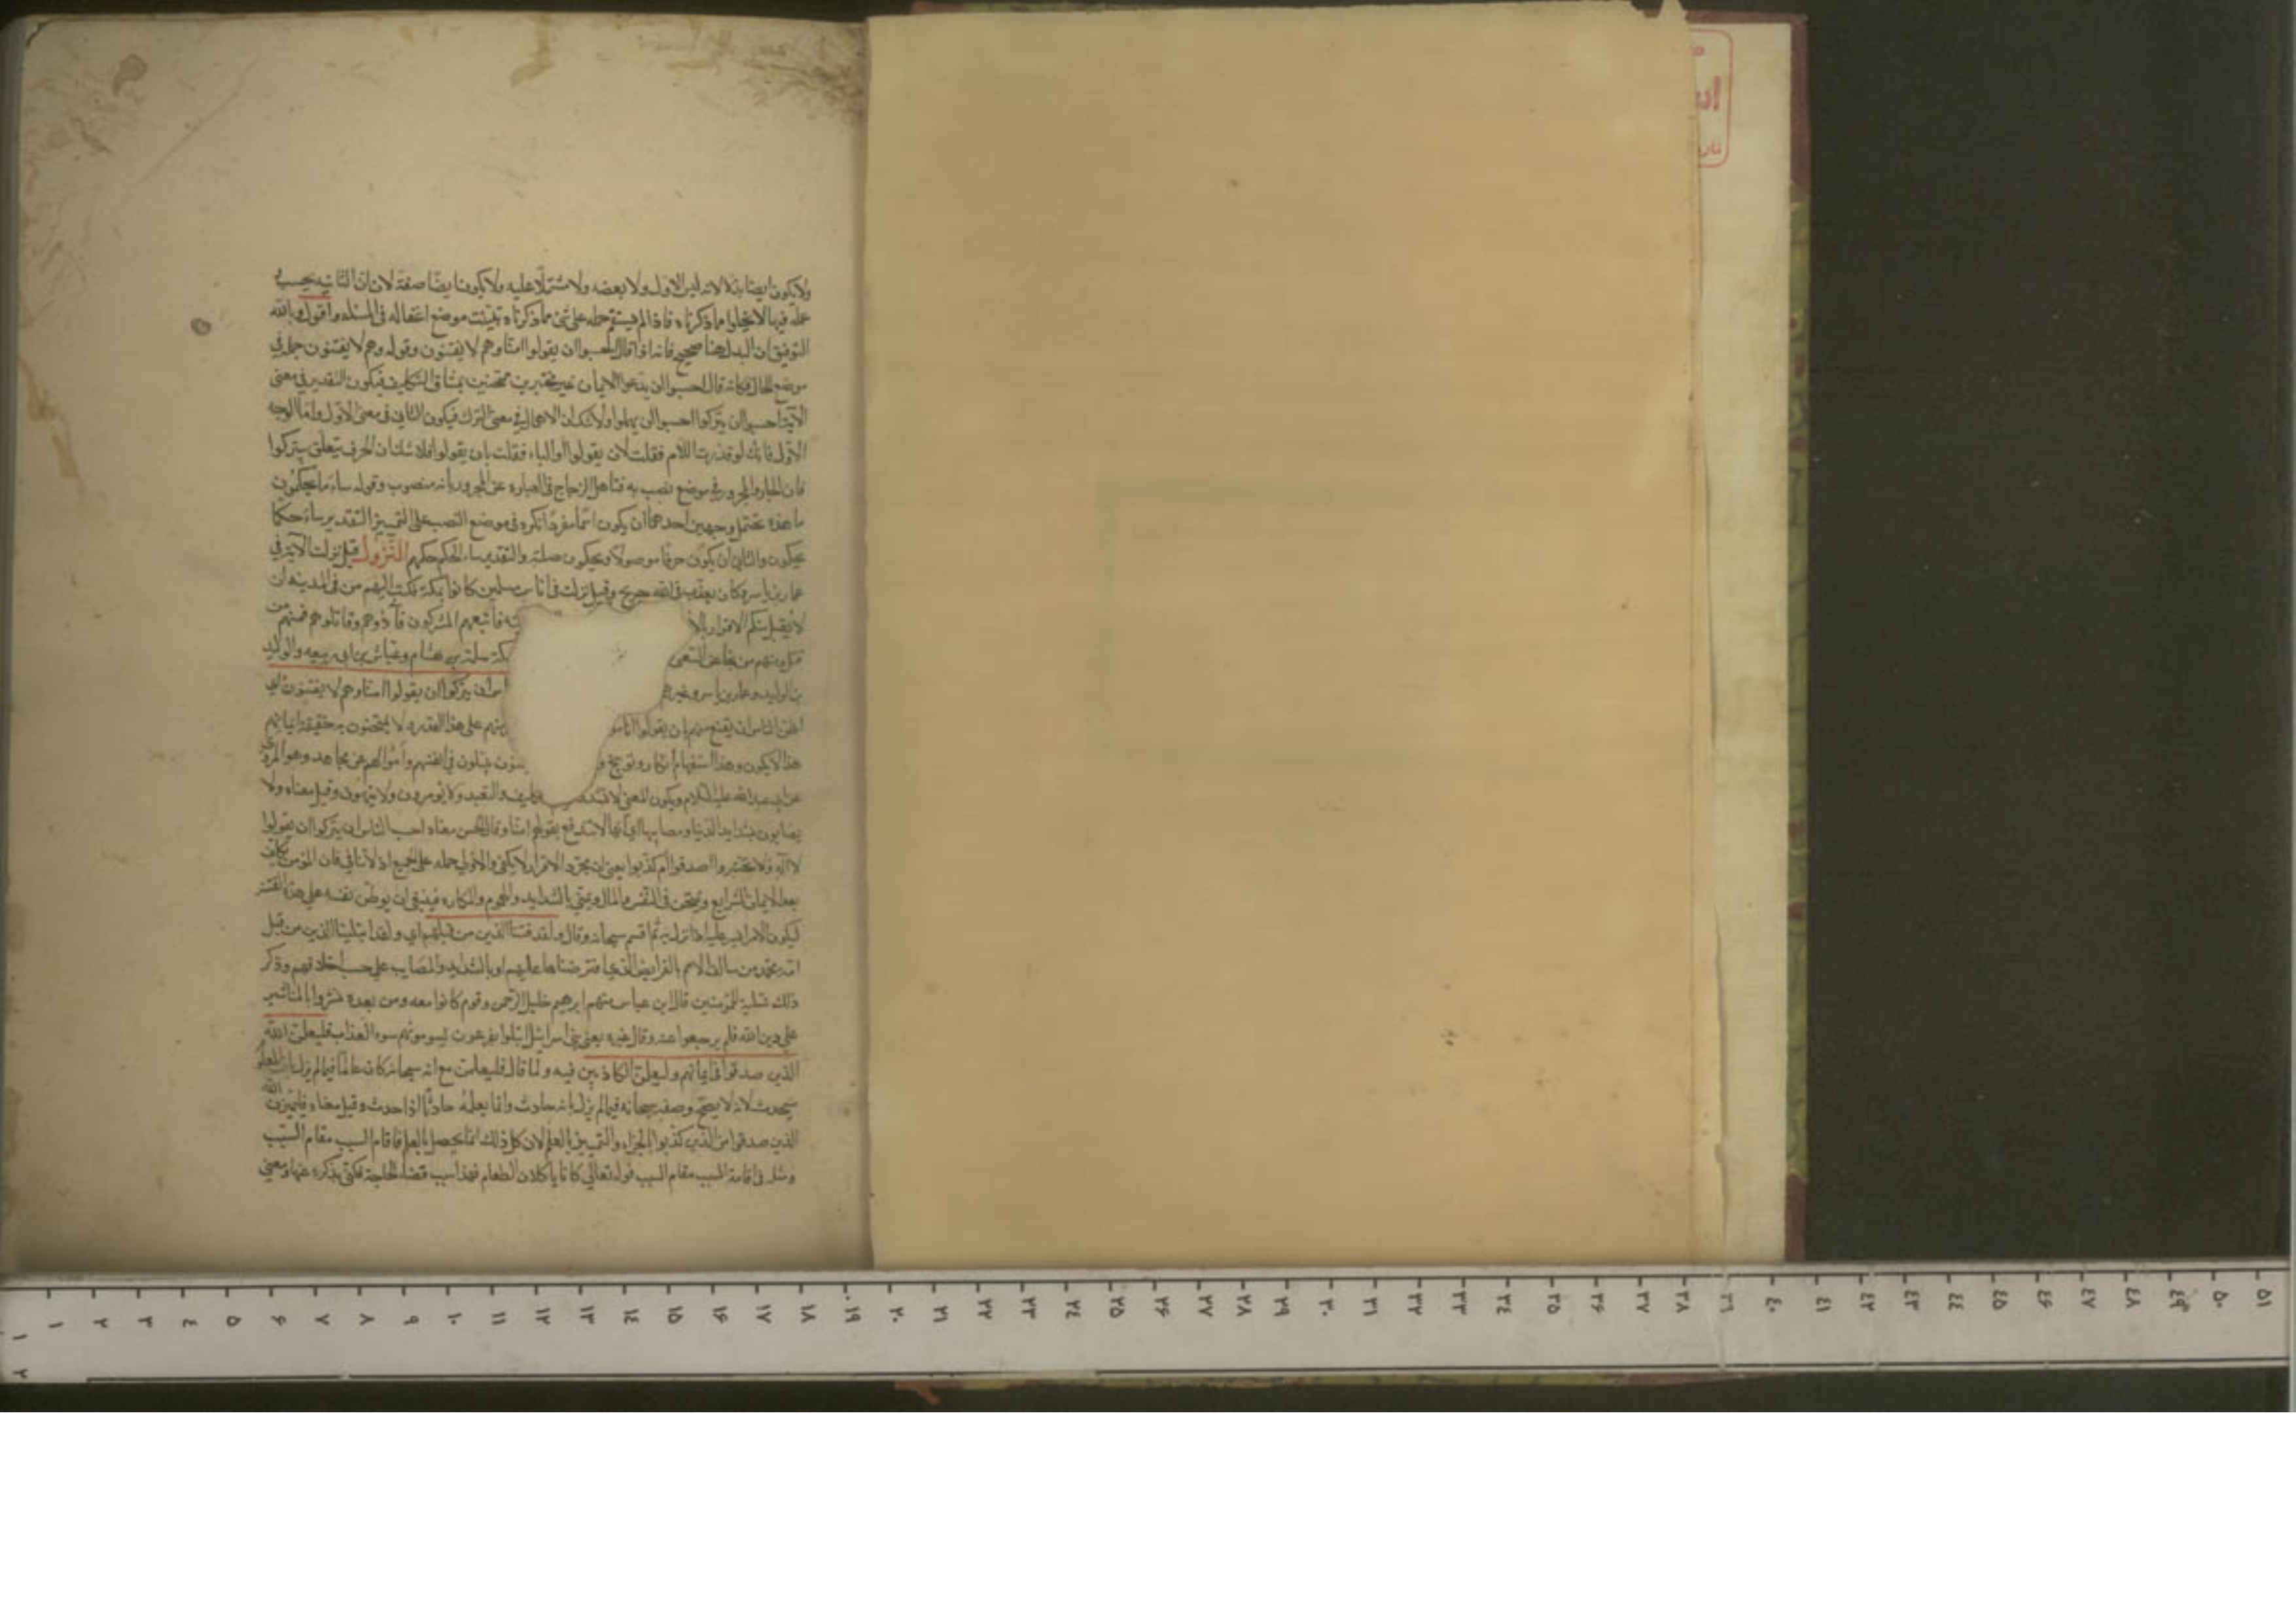 ولا يكون ايضا بدلا لانه ليس الاول ولا بعضه ولا مشتملا عليه ولا يكون ايضا صفة لان ان الثانيه يجب في
حمله فيها لا يخلوا مما ذكرناه فاذا لم يستقم حمله على شئ مما ذكرناه تبينت موضع اغفاله فى المسئله واقول وبالله
التوفيق ان البدل هنا صحيح فانه اذا قال احسبوا ان يقولوا امنا وهم لا يفتنون وقوله وهم لا يفتنون جملة في
موضع الحال فكانه قال احسبوا ان يدعوا الايمان غير مختبرين ممتحنين بمشاق التكليف فيكون التقدير في معنى
الآية احسبوا ان يتركوا احسبوا ان يهملوا ولا شك ان الاهمال في معنى الترك فيكون الثانى فى معنى الاول واما الوجه
الاول فانك لو قدرت اللام فقلت لان يقولوا او الباء فقلت بان يقولوا فلا شك ان الحرف يتعلق بيتركوا
فان الجار والمجرور في موضع نصب به فتساهل الزجاج فى العبارة عن المجرور بانه منصوب وقوله ساء ما يحكمون
ما هذه تحتمل وجهين احدهما ان يكون اسما مفردا نكره فى موضع النصب على التمييز التقدير ساء حكما
يحكمون والثانى ان يكون حرفا موصولا ويحكمون صلته والتقدير ساء الحكم حكمهم النزول قيل نزلت الآية في
عمار بن ياسر وكان يعذب فى الله جريج وقيل نزلت فى اناس مسلمين كانوا بمكة فكتب اليهم من فى المدينه ان
لا يقبل منكم الاقرار بالا فاتبعهم المشركون فآذوهم وقاتلوهم فمنهم من
قتل ومنهم من نجا عن الشعبى بمكة سلمة بن هشام وعياش بن ابى ربيعه والوليد
بن الوليد وعمار بن ياسر وغير ان يتركوا ان يقولوا امنا وهم لا يفتنون اي
اظن الناس ان يقنع منهم بان يقولوا انا منهم على هذا القدر ولا يمتحنون به حقيقة ايمانهم
هذا لا يكون وهذا استفهام انكار وتوبيخ يبتلون في انفسهم واموالهم عن مجاهد وهو المروى
عن ابى عبد الله عليه السلام ويكون المعنى لا والتعبد ولا يومرون ولا ينهون وقيل معناه ولا
يصابون بشدايد الدنيا ومصايبها اي انها لا تندفع بقولهم امنا وقال الحسن معناه احسب الناس ان يتركوا ان يقولوا
لا اله ولا يختبروا اصدقوا ام كذبوا يعنى ان مجرد الاقرار لا يكفى والاولى حمله على الجميع اذ لا تنافى فان المؤمن يكلف
بعد الايمان الشرايع ويمتحن فى النفس والمال ويمنى بالشدايد والهموم والمكاره فينبغى ان يوطن نفسه على هذه الفتنة
ليكون الامر ايسر عليه اذا نزل به ثم اقسم سبحانه وقال ولقد فتنا الذين من قبلهم اي ولقد ابتلينا الذين من قبل
امة محمد من سالف الامم بالفرايض التى افترضناها عليهم او بالشدايد والمصايب على حسب اختلافهم وذكر
ذلك تسلية للمؤمنين قال ابن عباس منهم ابرهيم خليل الرحمن وقوم كانوا معه ومن بعده نشروا بالمناشير
على دين الله فلم يرجعوا عنه وقال غيره يعنى بنى اسرائيل ابتلوا بفرعون يسومونهم سوء العذاب فليعلمن الله
الذين صدقوا فى ايمانهم وليعلمن الكاذبين فيه وانما قال فليعلمن مع انه سبحانه كان عالما فيما لم يزل بان المعلوم
سيحدث لانه لا يصح وصفه سبحانه فيما لم يزل بانه حادث وانما يعلمه حادثا اذا حدث وقيل معناه فليميزن الله
الذين صدقوا من الذين كذبوا بالجزاء والتمييز بالعلم لان كل ذلك انما يحصل بالعلم فاقام السبب مقام المسبب
ومثله فى اقامة السبب مقام المسبب قوله تعالى كانا ياكلان الطعام فهذا سبب قضاء الحاجة فكنى بذكره عنها ومعنى